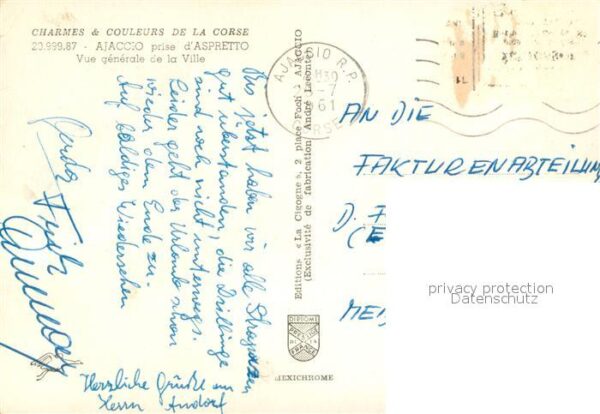 CHARMES & COULEURS DE LA CORSE
20.999.87 - AJACCIO prise d'ASPRETTO
Vue générale de la Ville
Bis jetzt haben wir alle Strapazen
gut überstanden, die Drillinge
sind noch nicht unterwegs.
Leider geht der Urlaub schon
wieder dem Ende zu.
Auf baldiges Wiedersehen
Herzliche Grüße an
Herrn Andorf
Editions «La Cigogne», 2 place Foch - AJACCIO
(Exclusivité de fabrication André Leconte)
DIPLOME
PRESTIGE
FRANCE
MEXICHROME
AJACCIO R.P.
-7
61
CORSE
AN DIE
FAKTURENABTEILUNG
D.
ME
privacy protection
Datenschutz